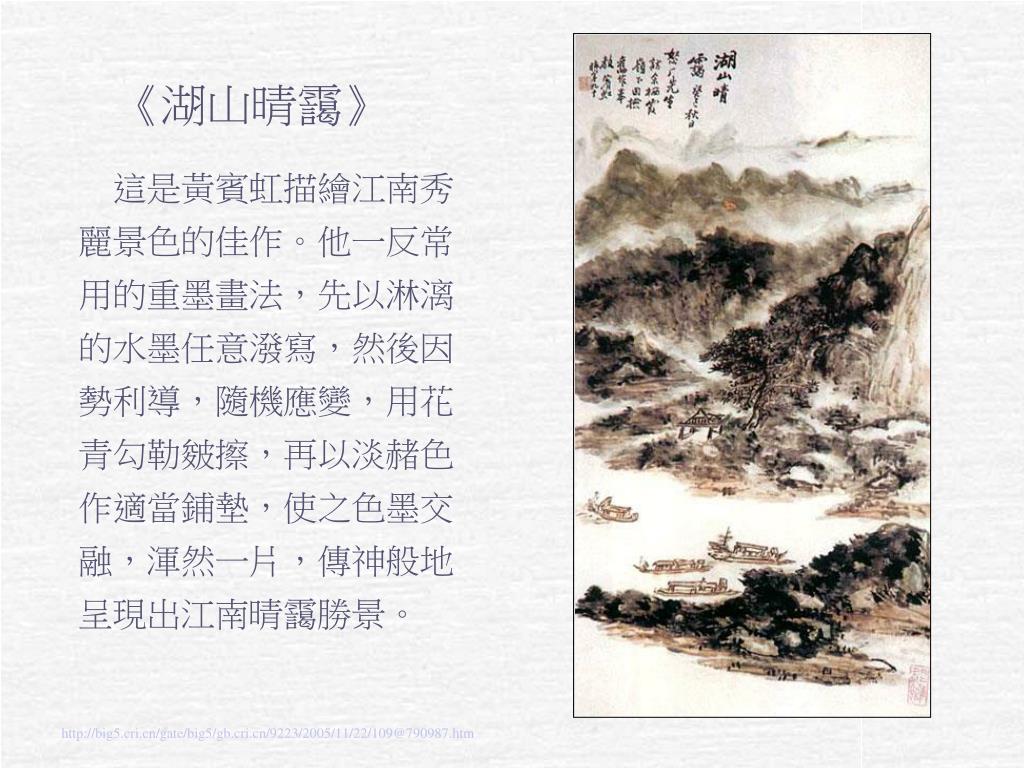 《湖山晴靄》
這是黃賓虹描繪江南秀
麗景色的佳作。他一反常
用的重墨畫法，先以淋漓
的水墨任意潑寫，然後因
勢利導，隨機應變，用花
青勾勒皴擦，再以淡赭色
作適當鋪墊，使之色墨交
融，渾然一片，傳神般地
呈現出江南晴靄勝景。
湖山晴
靄
秋日
http://big5.cri.cn/gate/big5/gb.cri.cn/9223/2005/11/22/109@790987.htm